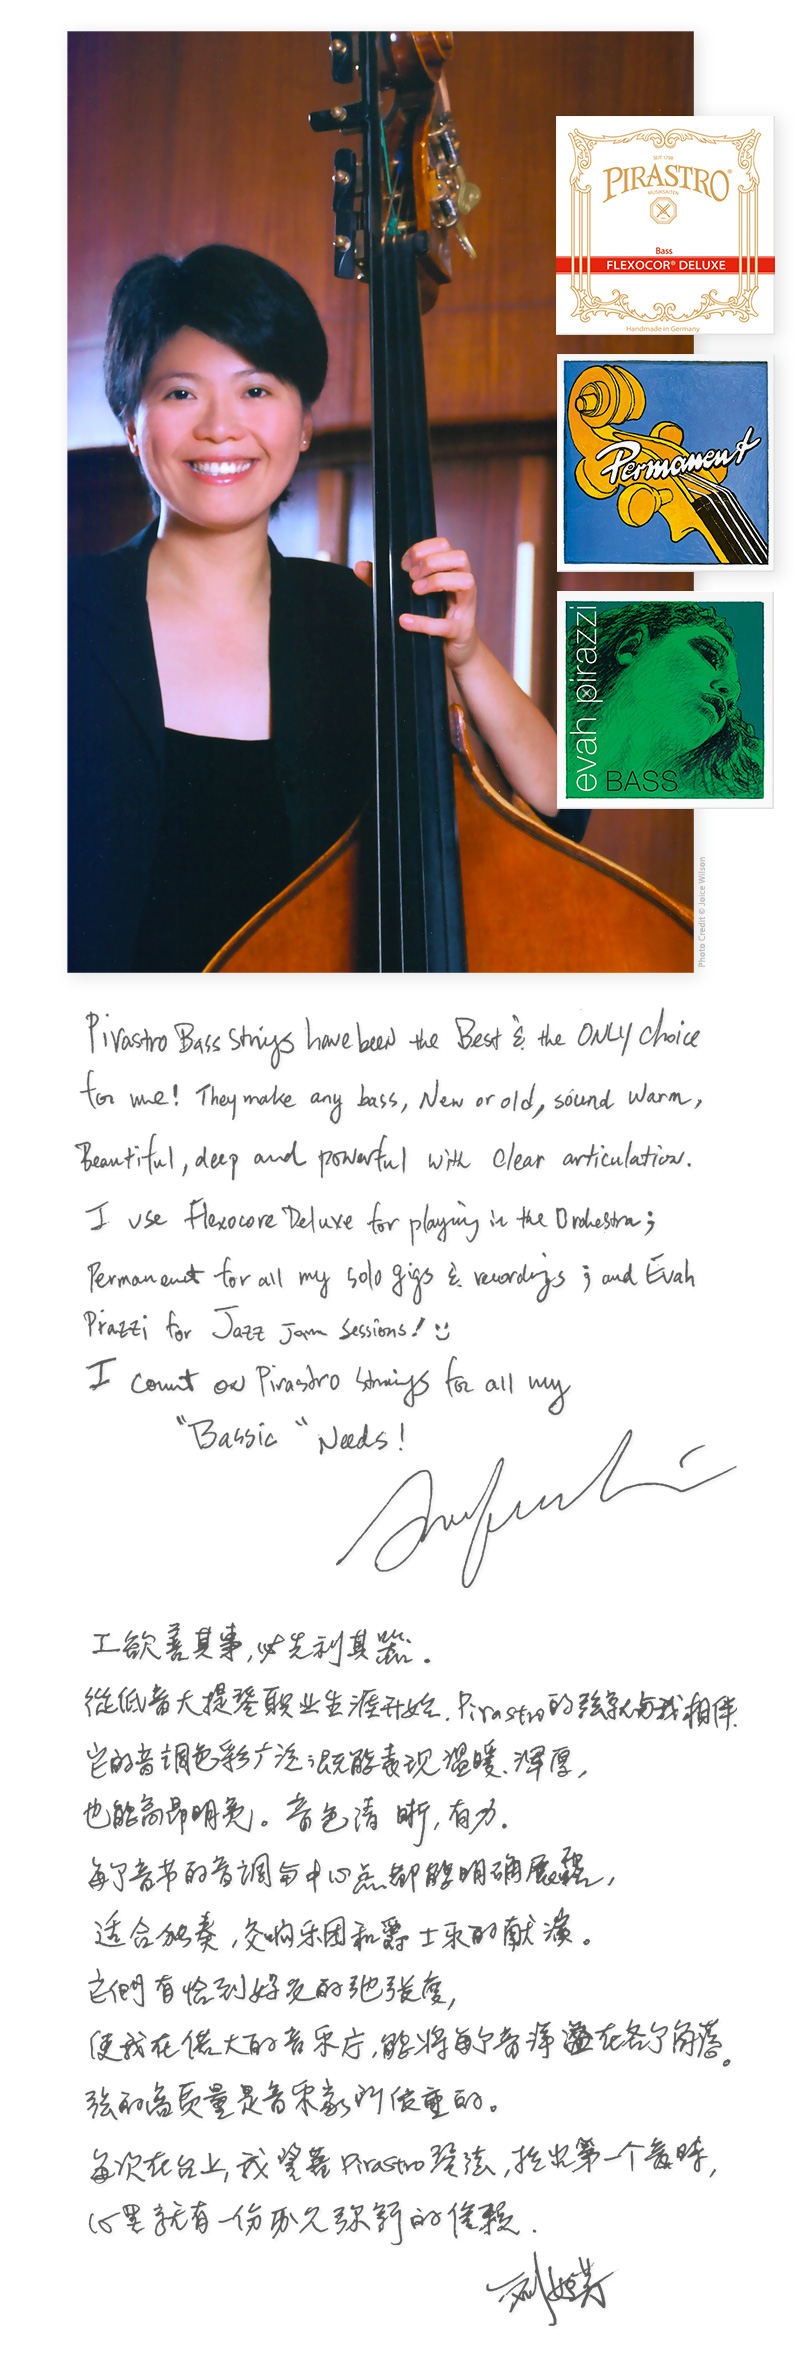 SEIT 1798
PIRASTRO®
MUSIKSAITEN
Bass
FLEXOCOR® DELUXE
Handmade in Germany
Permanent
evah pirazzi
BASS
Photo Credit © Joice Wilson
Pirastro Bass Strings have been the Best & the ONLY choice
for me! They make any bass, New or old, sound warm,
Beautiful, deep and powerful with Clear articulation.
I use Flexocore Deluxe for playing in the Orchestra;
Permanent for all my solo gigs & recordings; and Evah
Pirazzi for Jazz Jam Sessions!
I count on Pirastro Strings for all my
"Bassic" Needs!
工欲善其事,必先利其器.
從低音大提琴职业生涯开始,Pirastro的弦就与我相伴.
它的音调色彩广泛:既能表现温暖、浑厚,
也能高昂明亮。音色清晰,有力.
每个音节的音调与中心点都能明确展露,
适合独奏,交响乐团和爵士乐的献演。
它們有恰到好处的弛张度,
使我在偌大的音乐厅,能将每个音洋溢在各个角落。
弦的高质量是音乐家所信重的。
每次在台上,我望着Pirastro琴弦,拉出第一个音時,
心里就有一份历久弥新的信赖.